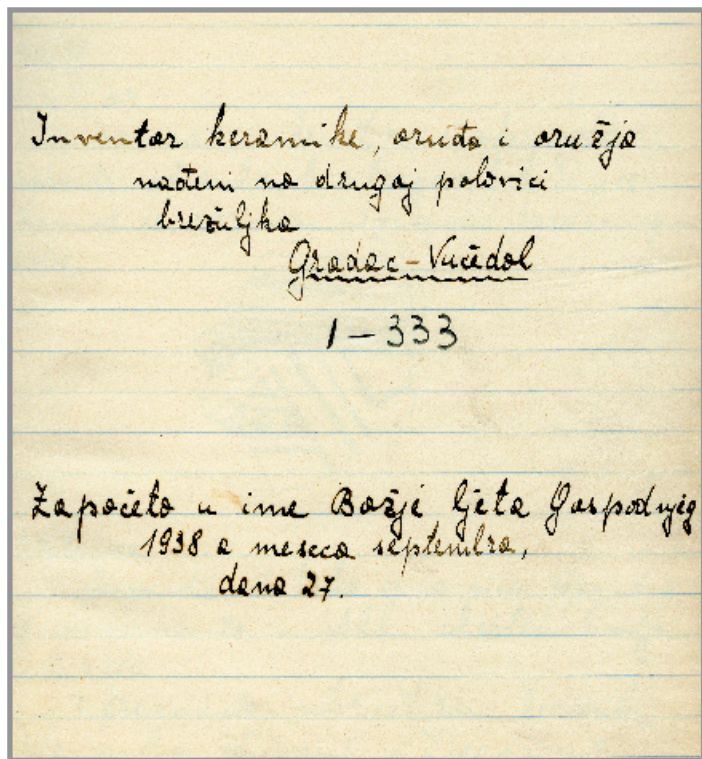 Inventar keramike, oruđa i oružja
nađeni na drugoj polovici
brežuljka
Gradac-Vučedol
1-333
Započeto u ime Božje ljeta Gospodnjeg
1938 a meseca septembra,
dana 27.